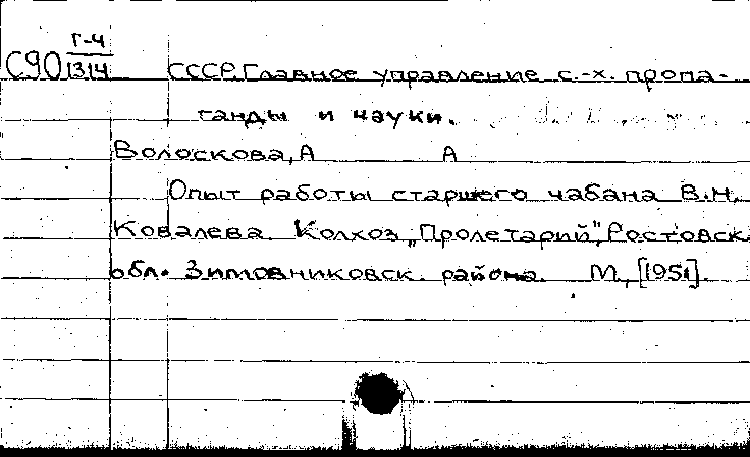 Г-4
С90 1314 СССР. Главное управление с.-х. пропа-
ганды и науки.
Волоскова, А А
Опыт работы старшего чабана В.Н.
Ковалева. Колхоз „Пролетарий", Ростовск.
обл. Зимовниковск. района. М., [1951].